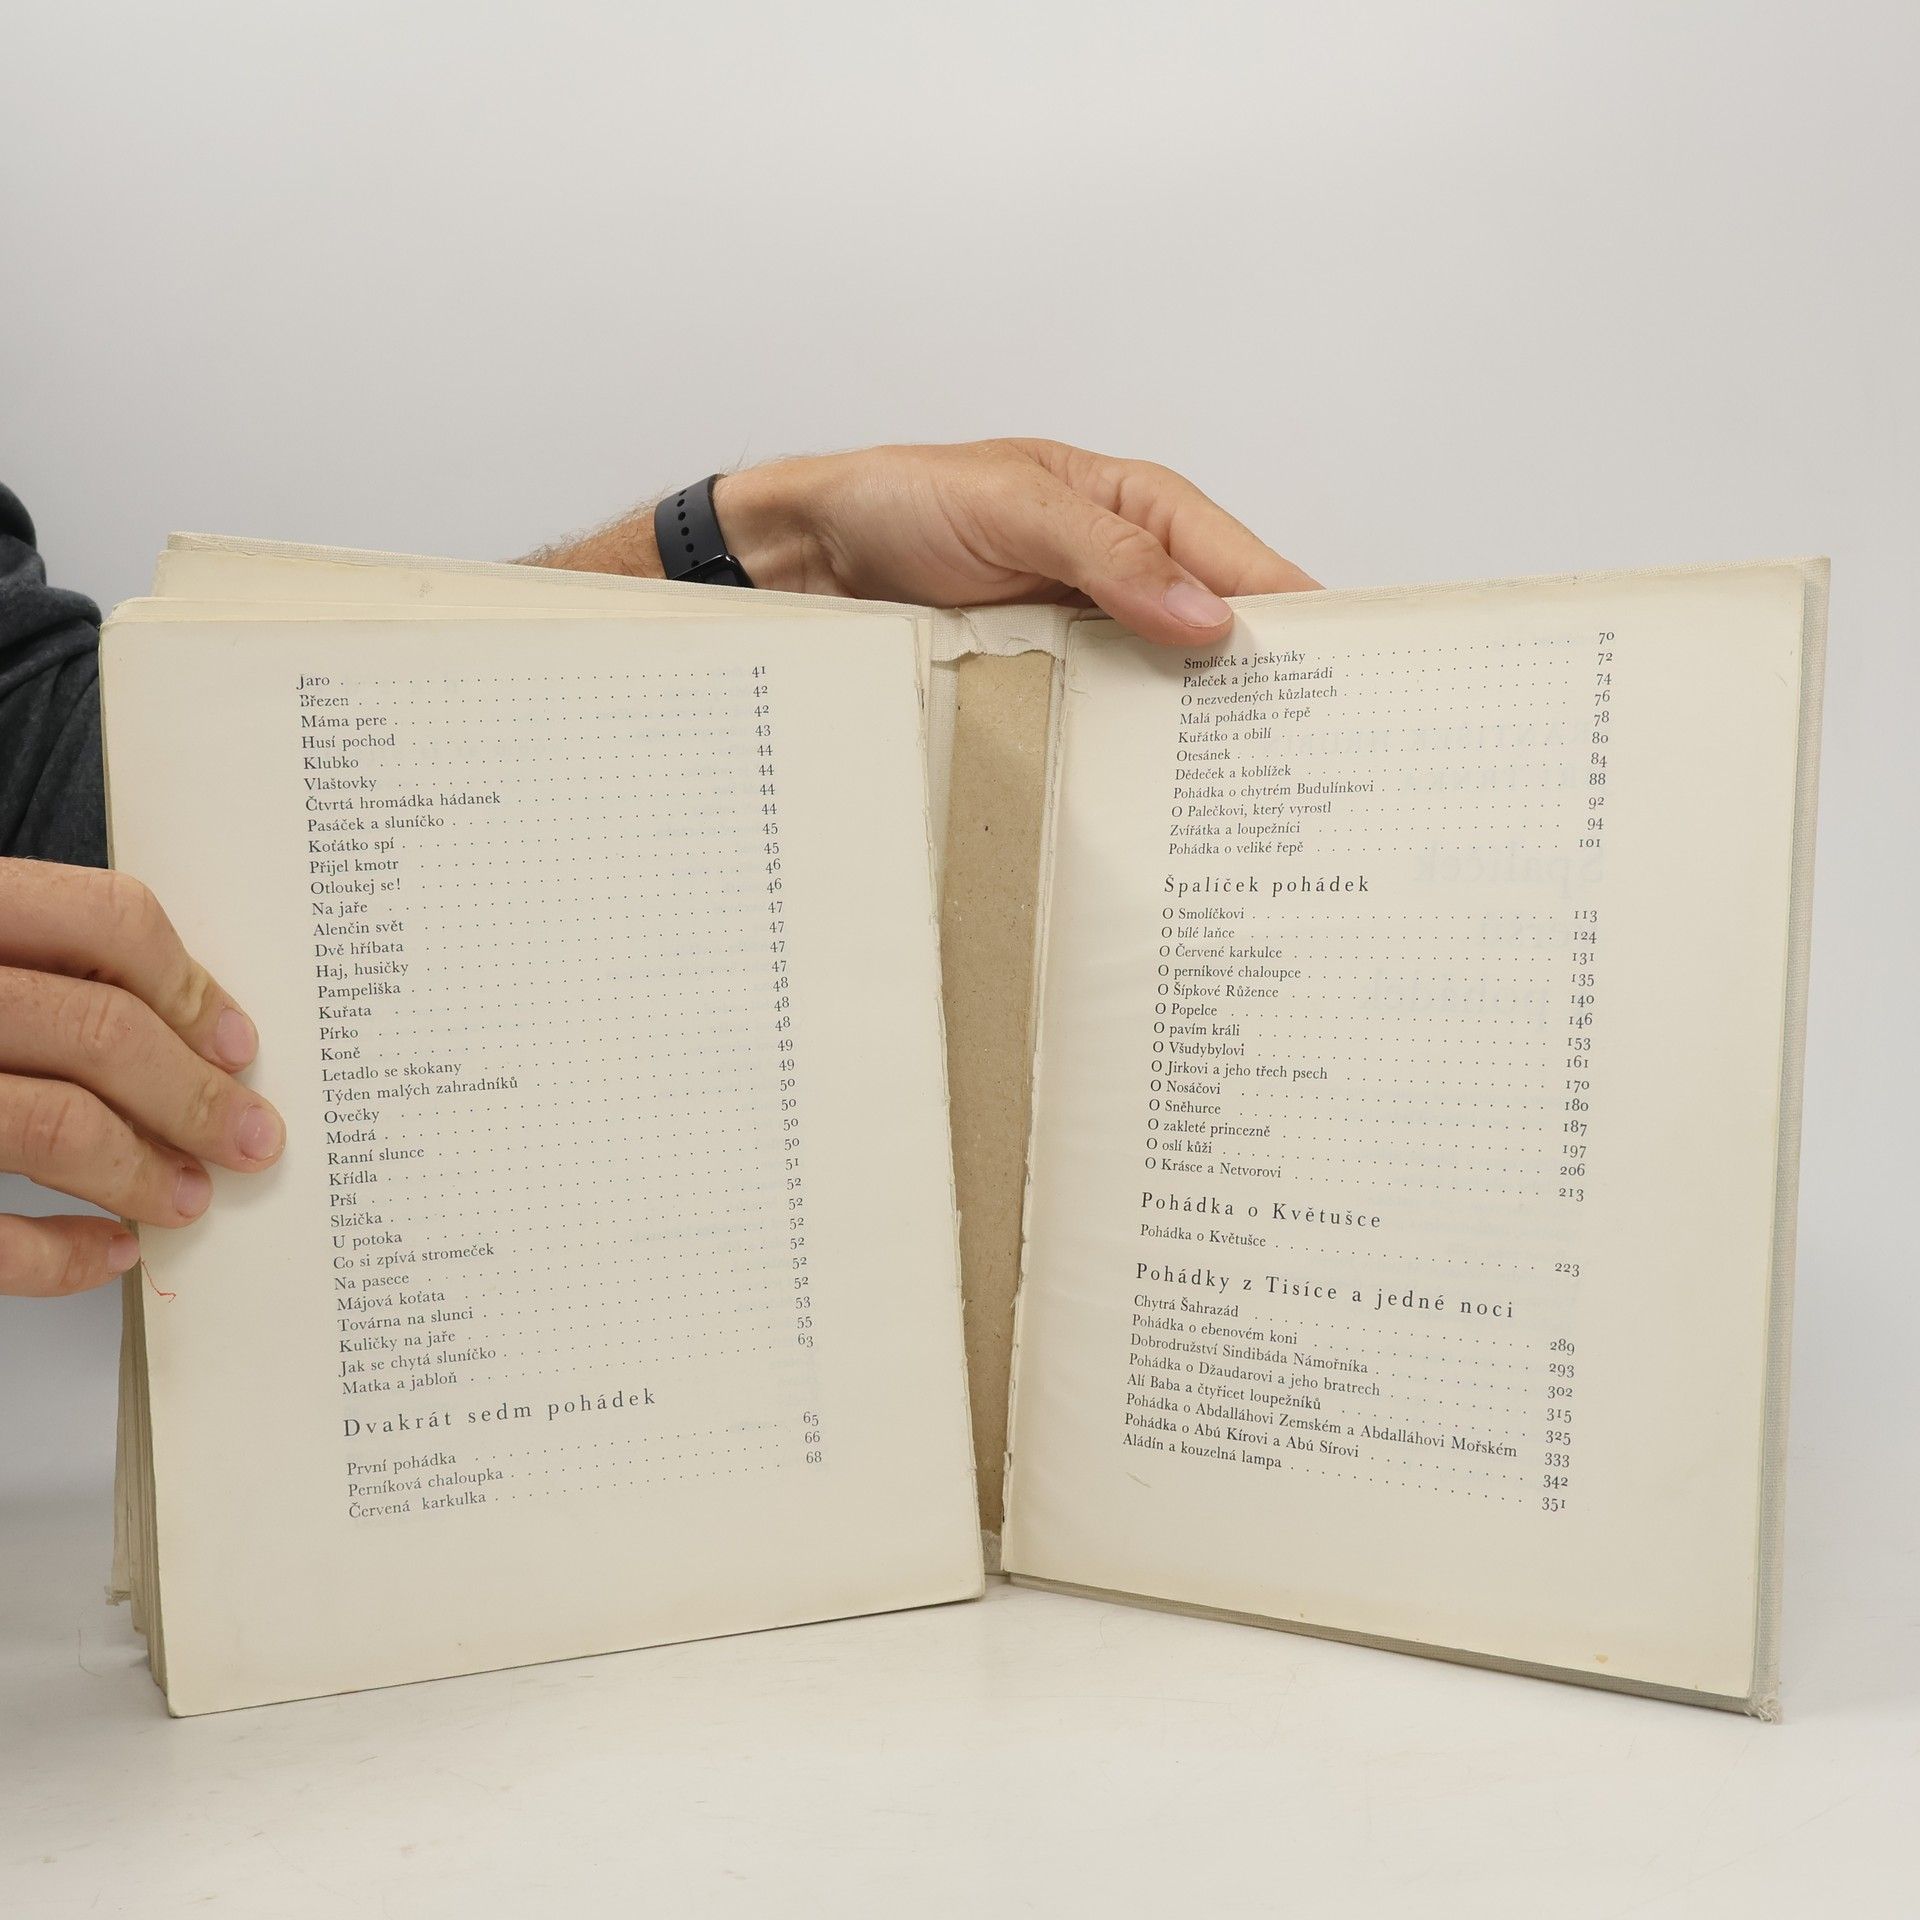 Jaro . . . . . . . . . . . . . . . . . . . . . . . . 41
Březen . . . . . . . . . . . . . . . . . . . . . . . 42
Máma pere . . . . . . . . . . . . . . . . . . . . . 42
Husí pochod . . . . . . . . . . . . . . . . . . . . 43
Klubko . . . . . . . . . . . . . . . . . . . . . . . 44
Vlaštovky . . . . . . . . . . . . . . . . . . . . . 44
Čtvrtá hromádka hádanek . . . . . . . . . . . . . . 44
Pasáček a sluníčko . . . . . . . . . . . . . . . . . 44
Koťátko spí . . . . . . . . . . . . . . . . . . . . 45
Přijel kmotr . . . . . . . . . . . . . . . . . . . . 45
Otloukej se! . . . . . . . . . . . . . . . . . . . . 46
Na jaře . . . . . . . . . . . . . . . . . . . . . . 46
Alenčin svět . . . . . . . . . . . . . . . . . . . . 47
Dvě hříbata . . . . . . . . . . . . . . . . . . . . 47
Haj, husičky . . . . . . . . . . . . . . . . . . . . 47
Pampeliška . . . . . . . . . . . . . . . . . . . . . 47
Kuřata . . . . . . . . . . . . . . . . . . . . . . . 48
Pírko . . . . . . . . . . . . . . . . . . . . . . . 48
Koně . . . . . . . . . . . . . . . . . . . . . . . . 48
Letadlo se skokany . . . . . . . . . . . . . . . . . 49
Týden malých zahradníků . . . . . . . . . . . . . . 49
Ovečky . . . . . . . . . . . . . . . . . . . . . . . 50
Modrá . . . . . . . . . . . . . . . . . . . . . . . 50
Ranní slunce . . . . . . . . . . . . . . . . . . . . 50
Křídla . . . . . . . . . . . . . . . . . . . . . . . 50
Prší . . . . . . . . . . . . . . . . . . . . . . . . 51
Slzička . . . . . . . . . . . . . . . . . . . . . . 52
U potoka . . . . . . . . . . . . . . . . . . . . . . 52
Co si zpívá stromeček . . . . . . . . . . . . . . . 52
Na pasece . . . . . . . . . . . . . . . . . . . . . 52
Májová koťata . . . . . . . . . . . . . . . . . . . 52
Továrna na slunci . . . . . . . . . . . . . . . . . 52
Kuličky na jaře . . . . . . . . . . . . . . . . . . 53
Jak se chytá sluníčko . . . . . . . . . . . . . . . 55
Matka a jabloň . . . . . . . . . . . . . . . . . . . 63
Dvakrát sedm pohádek
První pohádka . . . . . . . . . . . . . . . . . . . 65
Perníková chaloupka . . . . . . . . . . . . . . . . 66
Červená karkulka . . . . . . . . . . . . . . . . . . 68
Smolíček a jeskyňky . . . . . . . . . . . . . . . . 70
Paleček a jeho kamarádi . . . . . . . . . . . . . . 72
O nezvedených kůzlatech . . . . . . . . . . . . . . 74
Malá pohádka o řepě . . . . . . . . . . . . . . . . 76
Kuřátko a obilí . . . . . . . . . . . . . . . . . . 78
Otesánek . . . . . . . . . . . . . . . . . . . . . . 80
Dědeček a koblížek . . . . . . . . . . . . . . . . . 84
Pohádka o chytrém Budulínkovi . . . . . . . . . . . 88
O Palečkovi, který vyrostl . . . . . . . . . . . . . 92
Zvířátka a loupežníci . . . . . . . . . . . . . . . 94
Pohádka o veliké řepě . . . . . . . . . . . . . . . 101
Špalíček pohádek
O Smolíčkovi . . . . . . . . . . . . . . . . . . . . 113
O bílé laňce . . . . . . . . . . . . . . . . . . . . 124
O Červené karkulce . . . . . . . . . . . . . . . . . 131
O perníkové chaloupce . . . . . . . . . . . . . . . 135
O Šípkové Růžence . . . . . . . . . . . . . . . . . 140
O Popelce . . . . . . . . . . . . . . . . . . . . . 146
O pavím králi . . . . . . . . . . . . . . . . . . . 153
O Všudybylovi . . . . . . . . . . . . . . . . . . . 161
O Jirkovi a jeho třech psech . . . . . . . . . . . . 170
O Nosáčovi . . . . . . . . . . . . . . . . . . . . . 180
O Sněhurce . . . . . . . . . . . . . . . . . . . . . 187
O zakleté princezně . . . . . . . . . . . . . . . . 197
O oslí kůži . . . . . . . . . . . . . . . . . . . . 206
O Krásce a Netvorovi . . . . . . . . . . . . . . . . 213
Pohádka o Květušce
Pohádka o Květušce . . . . . . . . . . . . . . . . . 223
Pohádky z Tisíce a jedné noci
Chytrá Šahrazád . . . . . . . . . . . . . . . . . . 289
Pohádka o ebenovém koni . . . . . . . . . . . . . . 293
Dobrodružství Sindibáda Námořníka . . . . . . . . . 302
Pohádka o Džaudarovi a jeho bratrech . . . . . . . . 315
Alí Baba a čtyřicet loupežníků . . . . . . . . . . . 325
Pohádka o Abdalláhovi Zemském a Abdalláhovi Mořském 333
Pohádka o Abú Kírovi a Abú Sírovi . . . . . . . . . 342
Aládín a kouzelná lampa . . . . . . . . . . . . . . 351